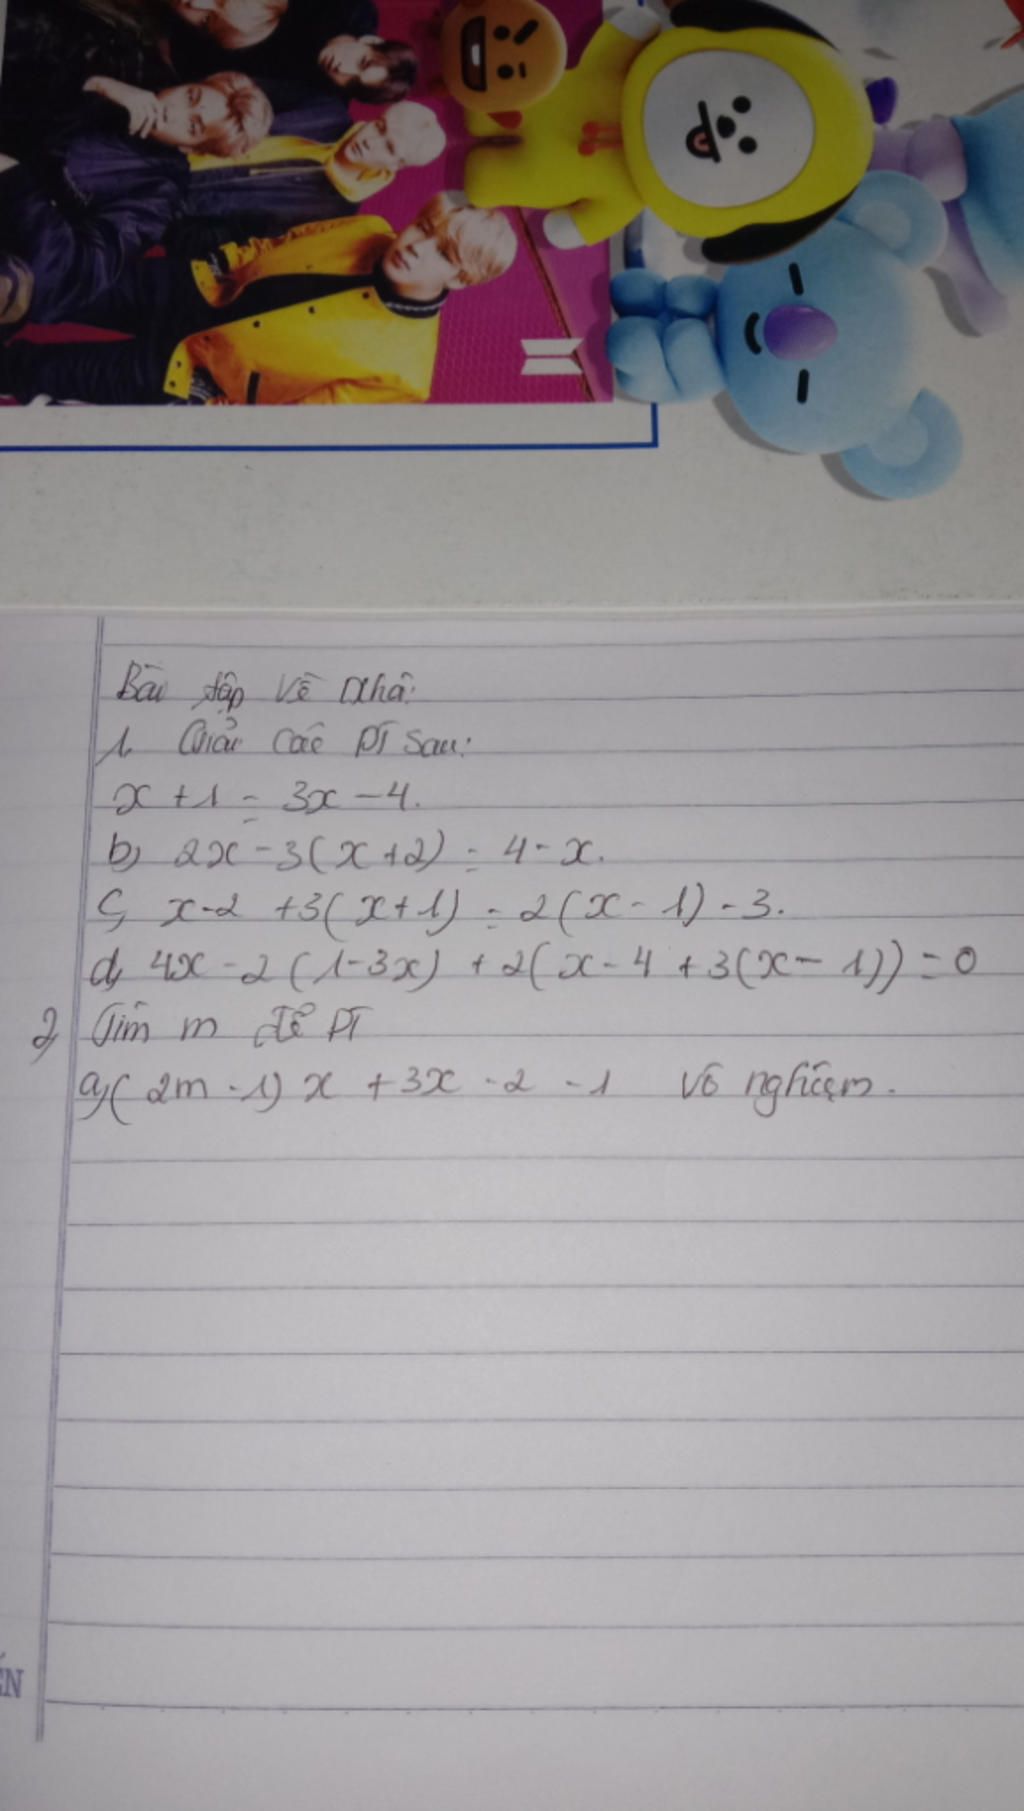 Bài tập về nhà:
1, Giải các PT sau:
x + 1 = 3x - 4.
b, 2x - 3(x+2) = 4 - x.
c, x-2 + 3(x+1) = 2(x-1) - 3.
d, 4x - 2(1-3x) + 2(x-4 + 3(x-1)) = 0
2, Tìm m để PT
a,(2m-1)x + 3x - 2 - 1 vô nghiệm.